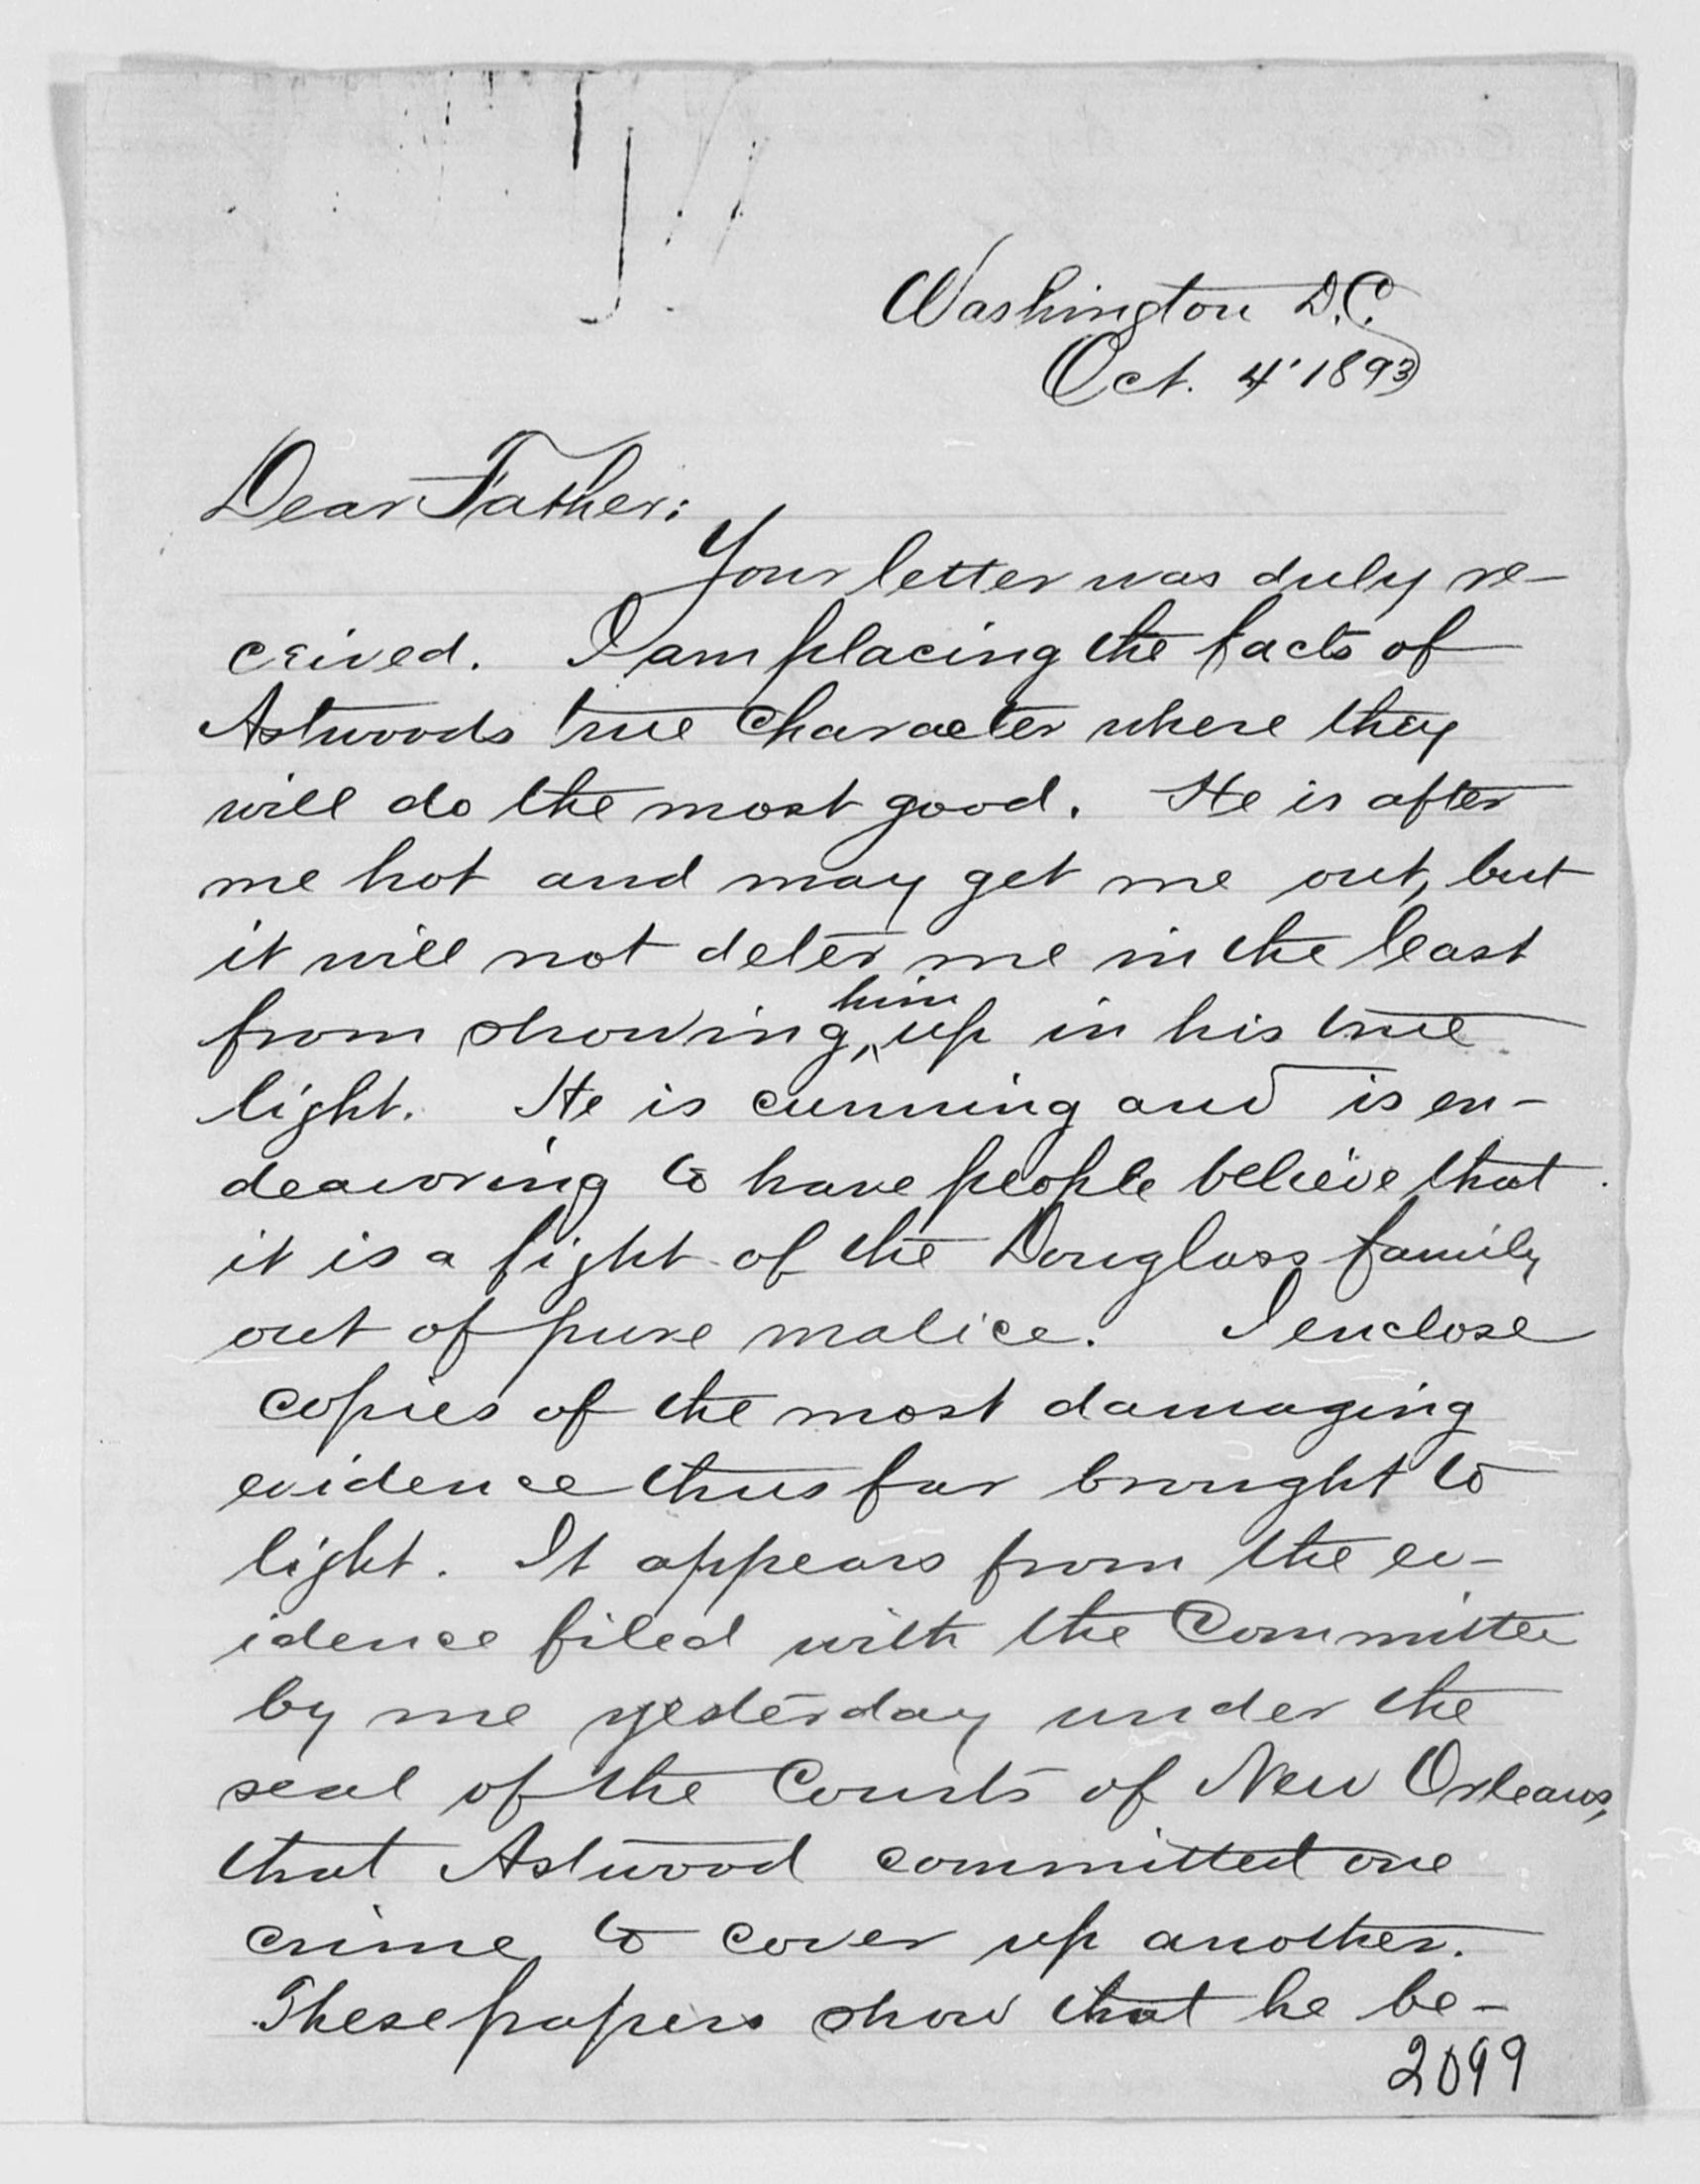 Washington D.C.
Oct. 4' 1893
Dear Father:
Your letter was duly re-
ceived. I am placing the facts of
Astwoods true Character where they
will do the most good. He is after
me hot and may get me out, but
it will not deter me in the least
him
from showing, ^ up in his true
light. He is cunning and is en-
deavoring to have people believe that
it is a fight of the Douglass family
out of pure malice. I enclose
copies of the most damaging
evidence thus far brought to
light. It appears from the ev-
idence filed with the Committee
by me yesterday under the
seal of the Courts of New Orleans,
that Astwood committed one
crime to cover up another.
These papers show that he be-
2099